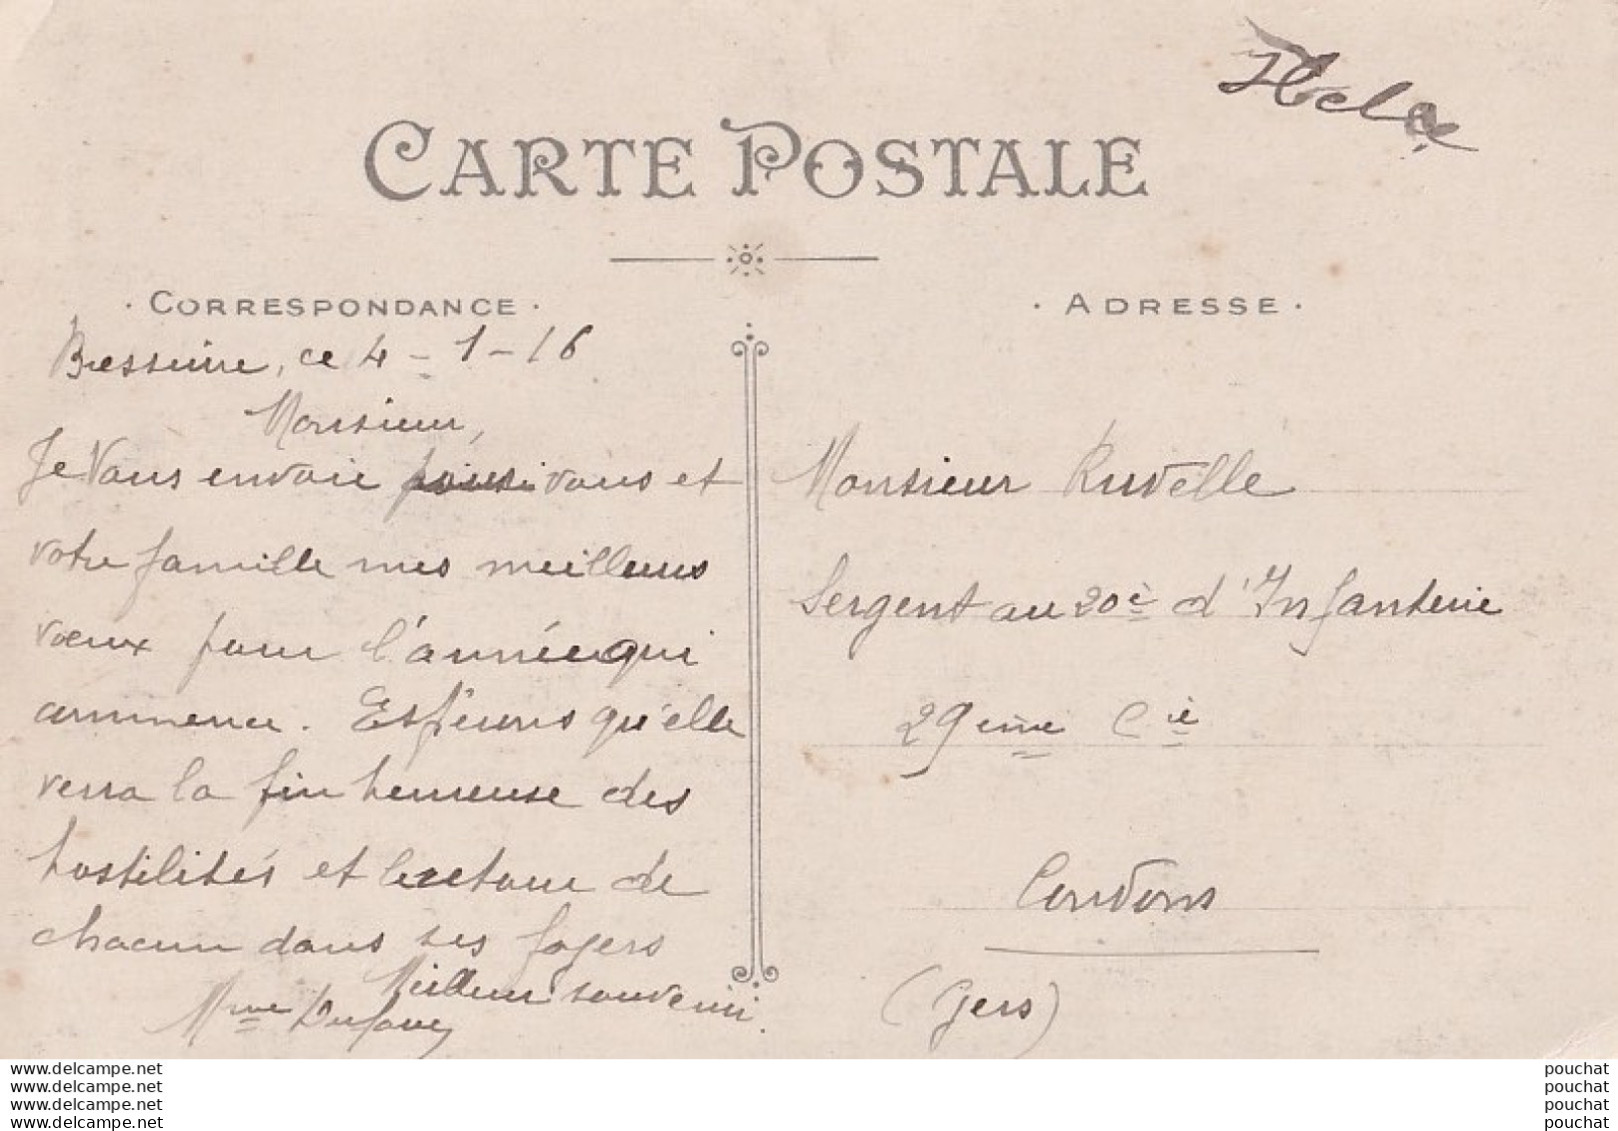 CARTE POSTALE
· CORRESPONDANCE ·
Bressuire, ce 4 - 1 - 16
Monsieur,
Je Vous envoie vous et
votre famille mes meilleurs
vœux pour l'année qui
commence. Espérons qu'elle
verra la fin heureuse des
hostilités et le retour de
chacun dans ses foyers
Meilleur souvenir.
Mme Dufour
· ADRESSE ·
Monsieur Ruvelle
Sergent au 20è d'Infanterie
29ème Cie
Condons
(Gers)
www.delcampe.net
www.delcampe.net
www.delcampe.net
www.delcampe.net
pouchat
pouchat
pouchat
pouchat